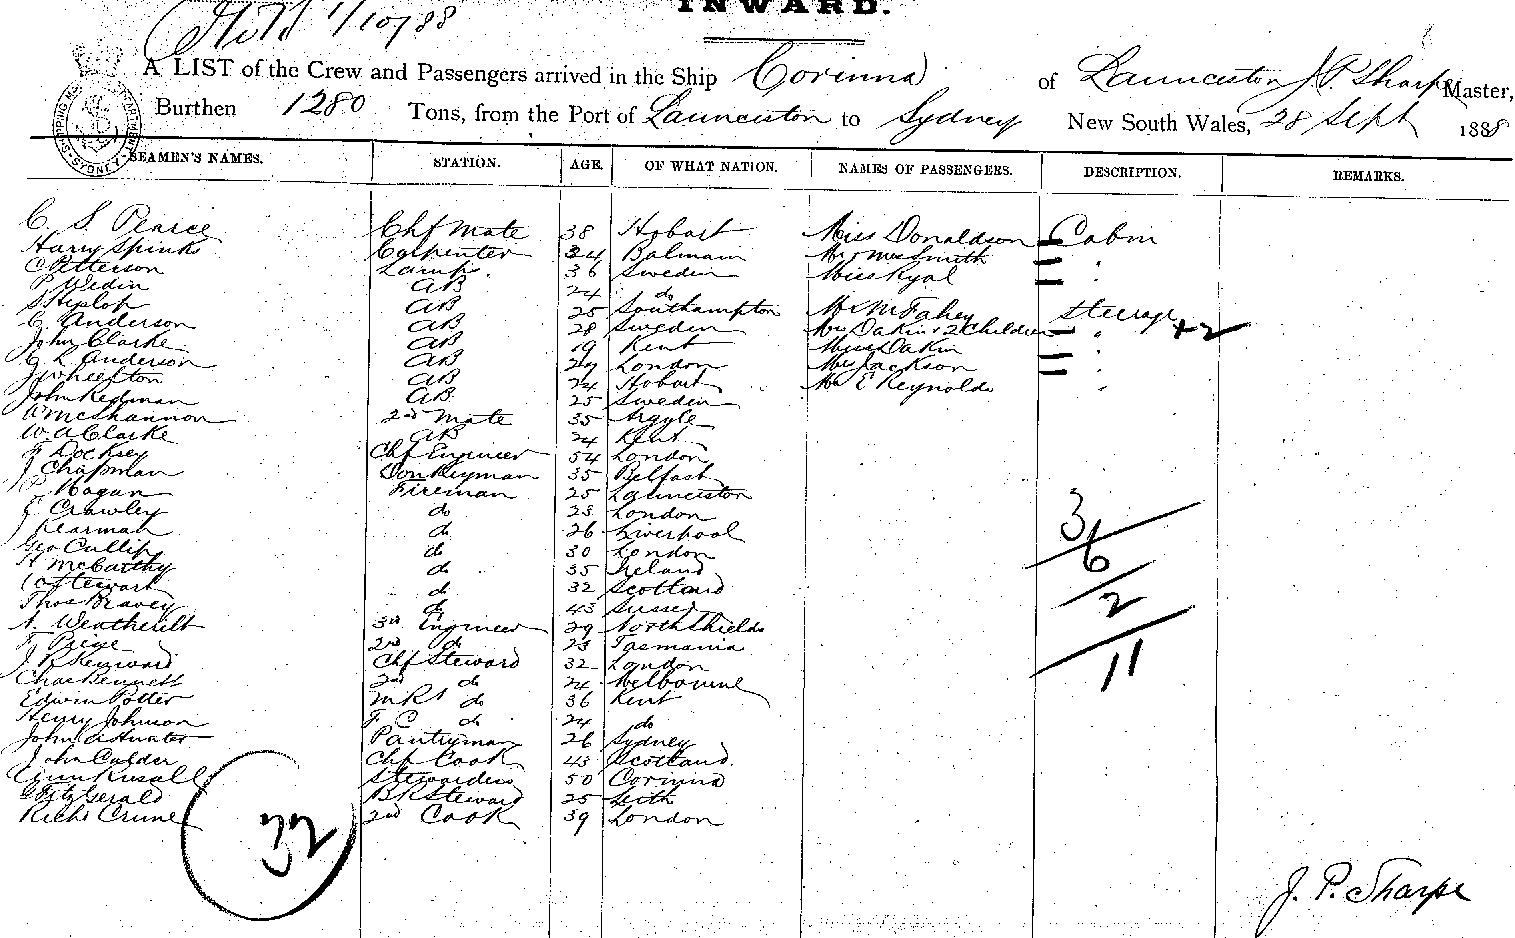 INWARD.
1/10/88
A LIST of the Crew and Passengers arrived in the Ship Corinna of Launceston J. P. Sharpe Master,
Burthen 1280 Tons, from the Port of Launceston to Sydney New South Wales, 28 Sept 1888
SEAMEN'S NAMES. STATION. AGE. OF WHAT NATION. NAMES OF PASSENGERS. DESCRIPTION. REMARKS.
C. S. Pearce Chf Mate 38 Hobart Miss Donaldson Cabin
Harry Spinks Carpenter 34 Balmain Mr & Mrs Smith "
C Petterson Lamps. 36 Sweden Miss Ryal "
P Wedin AB 24 do
S Hyslop AB 25 Southampton Mr McFahey Steerage
C. Anderson AB 28 Sweden Mrs Dakin & 2 Children " +2
John Clarke AB 19 Kent Miss Dakin "
C L Anderson AB London Mr Jackson "
J Wheelton AB 24 Hobart Mr E Reynolds "
John Redman AB 25 Sweden
W McShannon 2nd Mate 35 Argyle
W. A Clarke AB 24 Kent
Docksey Chf Engineer 54 London
J Chapman Donkeyman 35 Belfast
P. Hogan Fireman 25 Launceston
E Crawley do 23 London
J Kearman do 26 Liverpool
Geo Cullip do 30 London
H McCarthy do 35 Ireland
Stewart do 32 Scotland
Thos Bravey do 43 Sussex
A. Weatherilt 3rd Engineer 29 North Shields
F. Paige 2nd do 23 Tasmania
J. R. Heyward Chf Steward 32 London
Chas Bennett 2nd do 24 Melbourne
Edwin Potter do 36 Kent
Henry Johnson F. C do 24 do
John Pantryman 26 Sydney
John Calder Chf Cook 43 Scotland.
Stewardess 50 Corinna
FitzGerald BR Steward 25 Leith
Richd 2nd Cook 39 London
3
6
2
11
J. P. Sharpe